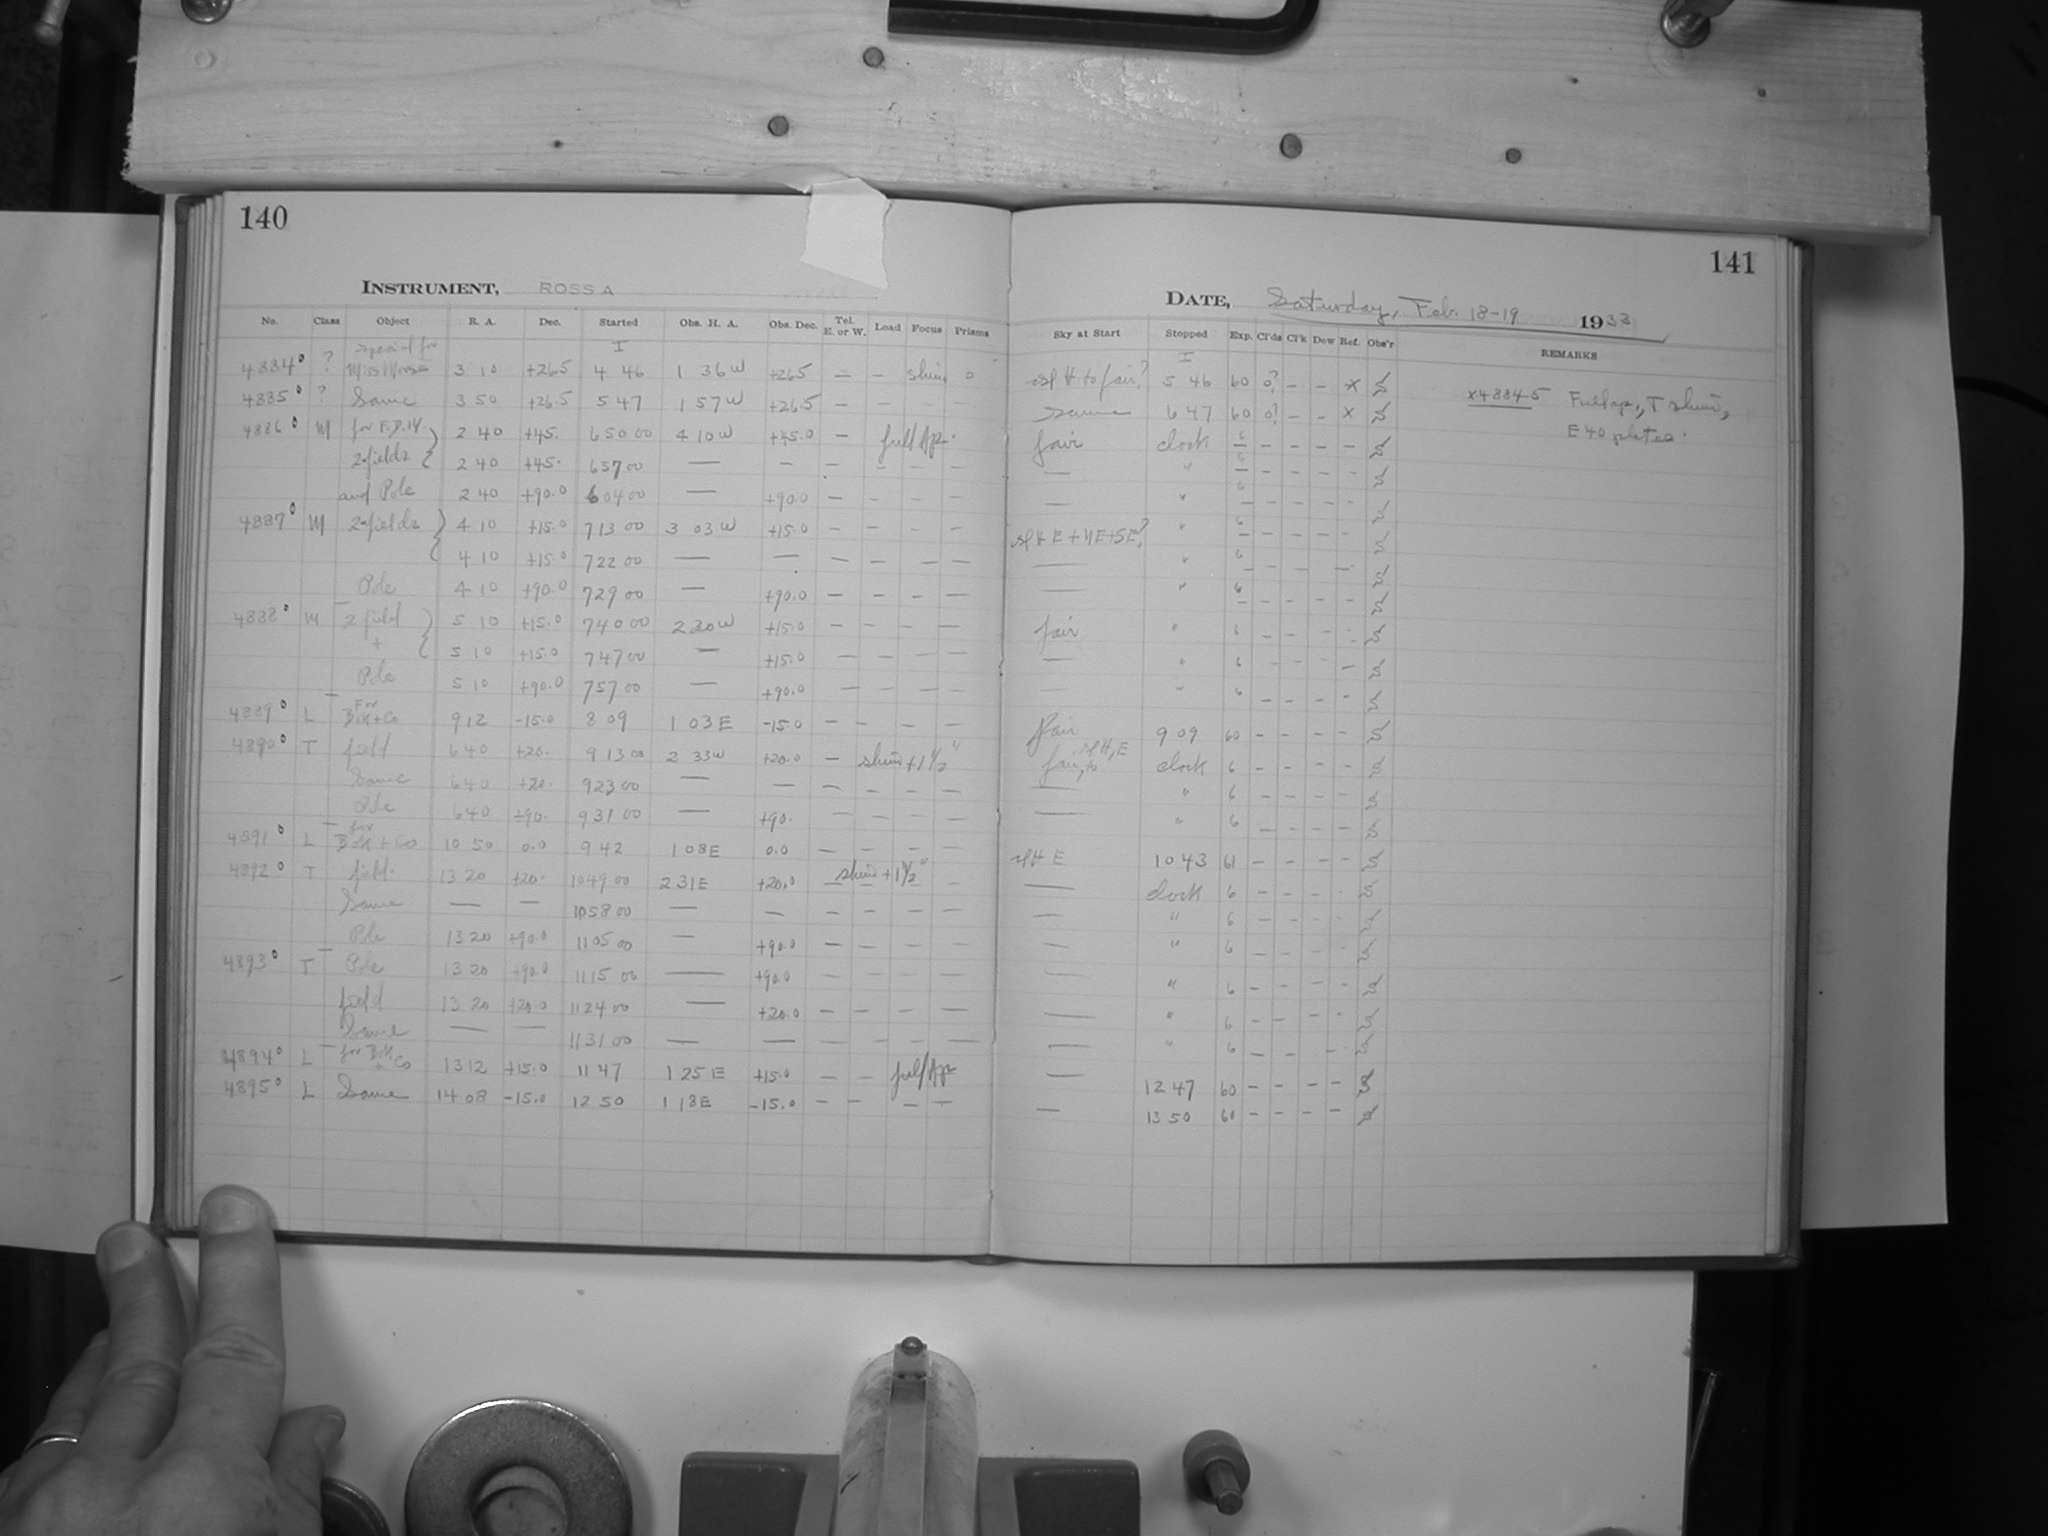 140
INSTRUMENT, ROSS A
No. Class Object R. A. Dec. Started Obs. H. A. Obs. Dec. Tel. E. or W. Load Focus Prisms
I
special for
4884° ? Miss Morse 3 10 +26.5 4 46 1 36 W +26.5 — – shim 0
4885° ? Same 3 50 +26.5 5 47 1 57 W +26.5 – – – –
4886° M for F.D.M. 2 40 +45. 6 50 00 4 10 W +45.0 — full Ap.
2 fields 2 40 +45. 6 57 00 — – – – – –
and Pole 2 40 +90.0 6 04 00 — +90.0 – – – –
4887° M 2 fields 4 10 +15.0 7 13 00 3 03 W +15.0 – – – –
4 10 +15.0 7 22 00 — — – – – –
Pole 4 10 +90.0 7 29 00 — +90.0 – – – –
4888° M 2 field 5 10 +15.0 7 40 00 2 30 W +15.0 – – – –
+ 5 10 +15.0 7 47 00 — +15.0 – – – –
Pole 5 10 +90.0 7 57 00 — +90.0 – – – –
For
4889° L Bok + Co 9 12 -15.0 8 09 1 03 E -15.0 – – – –
4890° T field 6 40 +20. 9 13 00 2 33 W +20.0 – shim + 1 1/2"
Same 6 40 +20. 9 23 00 — – – – – –
Pole 6 40 +90. 9 31 00 — +90. – – – –
for
4891° L Bok + Co 10 50 0.0 9 42 1 08 E 0.0 – – – –
4892° T field. 13 20 +20. 10 49 00 2 31 E +20.0 shim + 1 1/2"
Same — — 10 58 00 — – – – – –
Pole 13 20 +90.0 11 05 00 — +90.0 – – – –
4893° T Pole 13 20 +90.0 11 15 00 — +90.0 – – – –
field 13 20 +20.0 11 24 00 — +20.0 – – – –
Same — — 11 31 00 — — – – – –
4894° L for Bok + Co 13 12 +15.0 11 47 1 25 E +15.0 – – full Ap
4895° L Same 14 08 -15.0 12 50 1 18 E -15.0 – – – –
141
DATE, Saturday, Feb. 18-19 1933
Sky at Start Stopped Exp. Cl'ds Cl'k Dew Ref. Obs'r REMARKS
I
to fair? 5 46 60 0? – – x x4884-5 Full ap., T shim,
same 6 47 60 0? – – x E 40 plates.
fair clock 6 – – – –
— " 6 – – – –
— " 6 – – – –
E + NE + SE? " 6 – – – –
— " 6 – – – –
— " 6 – – – –
fair " 6 – – – –
— " 6 – – – –
— " 6 – – – –
Fair 9 09 60 – – – –
fair, to H, E clock 6 – – – –
— " 6 – – – –
— " 6 – – – –
H E 10 43 61 – – – –
— clock 6 – – – –
— " 6 – – – –
— " 6 – – – –
— " 6 – – – –
— " 6 – – – –
— " 6 – – – –
— 12 47 60 – – – –
— 13 50 60 – – – –